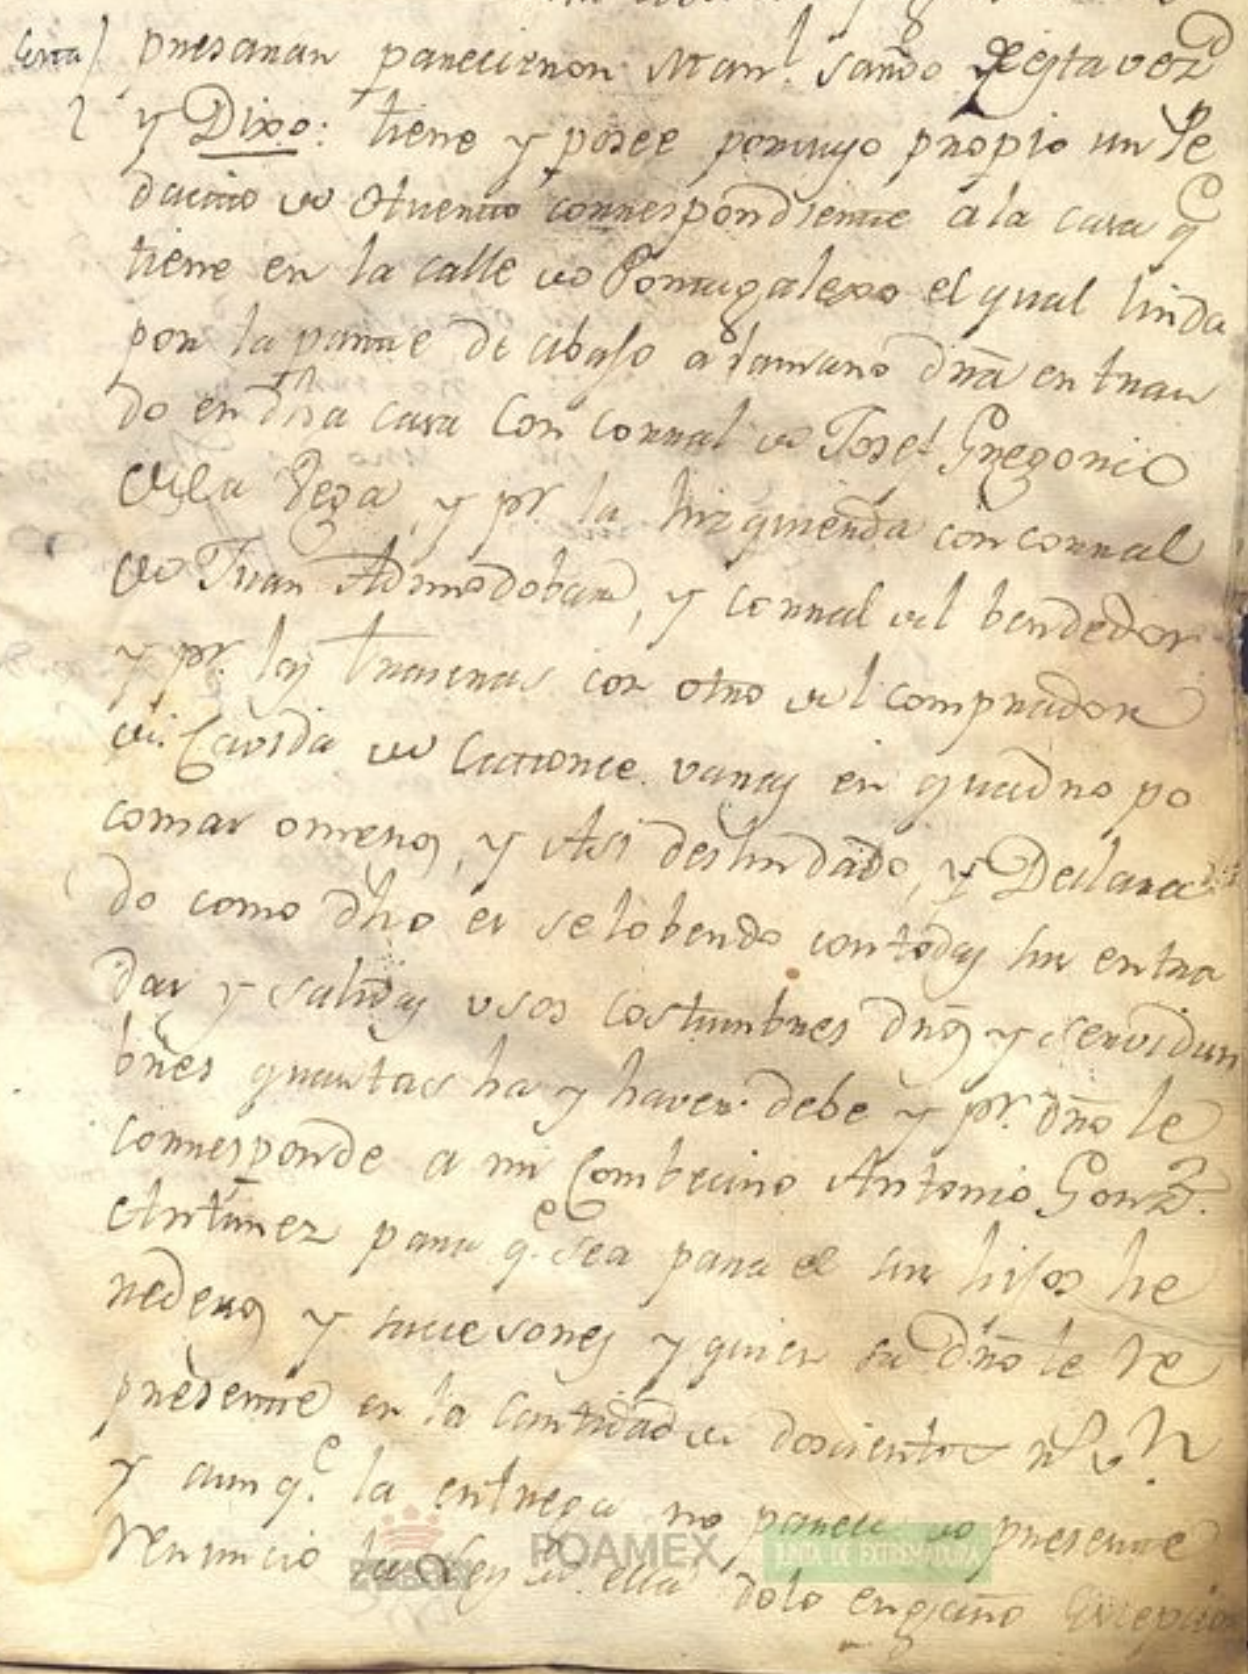 presaran parecieron Man.l Saño de esta vez.d
y Dixo: tiene y posee por suyo propio un Pe
dacito de Huerto correspondiente a la casa q.e
tiene en la calle de Portugalexo el qual linda
por la parte de abajo a la mano dra entran
do en dha casa con corral de Josef Gregorio
de la Vega, y pr. la hizquierda con corral
de Juan Admodobar, y corral del bendedor
y pr. las traseras con otro del comprador
de Cavida de Catorce varas en quadro po
co mas o menos, y Asi deslindado, y Declara
do como dho es se lo bendo con todas sus entra
das y salidas usos costumbres dros y servidum
bres quantas ha y haver debe y pr. dro le
corresponde a mi Combecino Antonio Gonz.
Antunez para q.e sea para el sus hijos he
rederos y sucesores y quien su dro le re
presente en la Cantidad de doscientos r.s v.n
y aunq.e la entrega no parece de presente
renuncio las Leyes de ella dolo engaño Excepcion
POAMEX
JUNTA DE EXTREMADURA